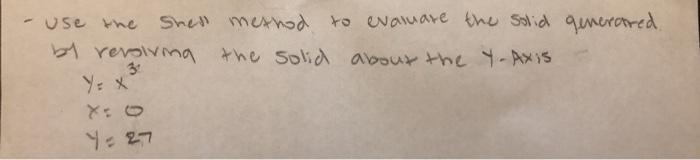 - Use the Shell method to evaluate the solid generated
by revolving the solid about the Y-Axis
y = x³
x = 0
y = 27